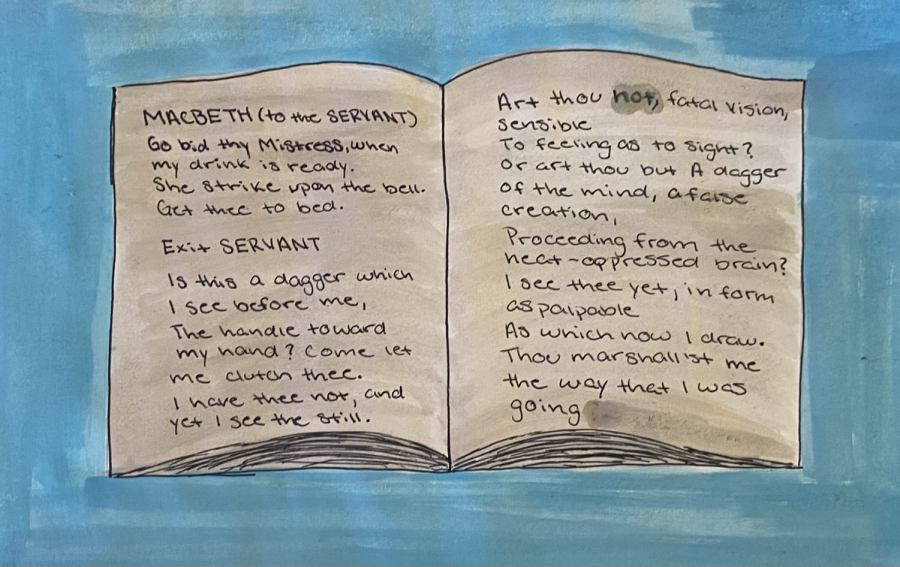 MACBETH (to the SERVANT)
Go bid thy Mistress, when
my drink is ready.
She strike upon the bell.
Get thee to bed.
Exit SERVANT
Is this a dagger which
I see before me,
The handle toward
my hand? Come let
me clutch thee.
I have thee not, and
yet I see the still.
Art thou not, fatal vision,
sensible
To feeling as to sight?
Or art thou but A dagger
of the mind, a false
creation,
Proceeding from the
heat-oppressed brain?
I see thee yet, in form
as palpable
As which now I draw.
Thou marshall'st me
the way that I was
going